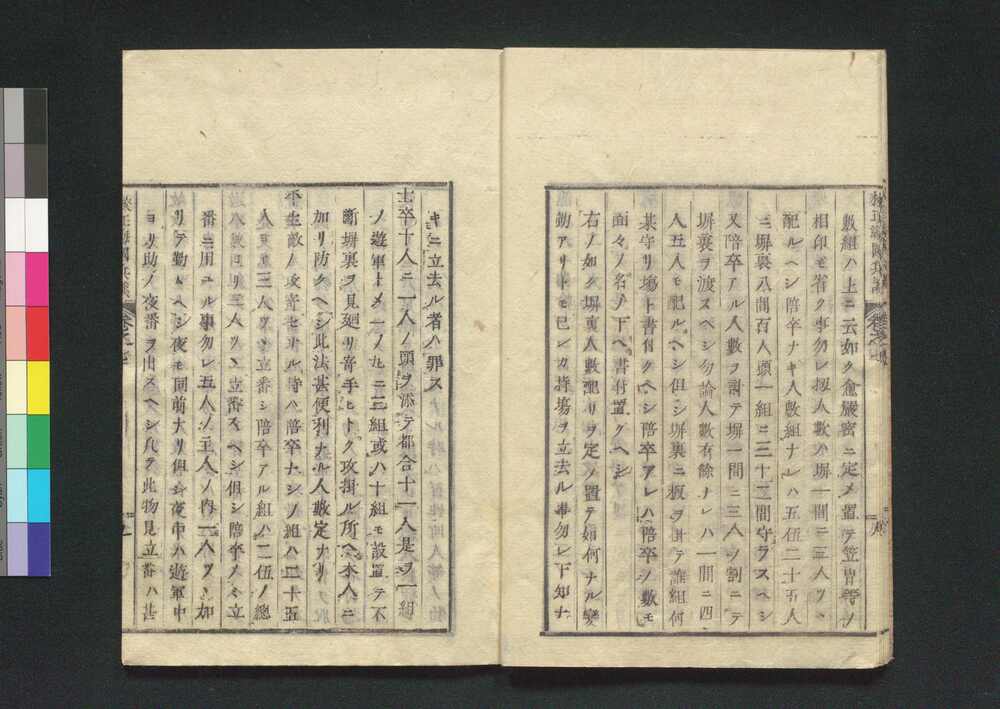 數組ハ上ニ云如ク愈嚴密ニ定メ置テ笠冑等ノ
相印モ省ク事勿レ扨人數ハ塀一間ニ三人ツヽ
配ルヘシ陪卒ナキ人數組ナレハ五伍二十五人
ニ塀裏八間百人頭一組ニ三十二間守ラスヘシ
又陪卒アル人數ヲ割テ塀一間ニ三人ノ割ニテ
塀裏ヲ渡スヘシ勿論人數有餘ナレハ一間ニ四
人五人モ配ルヘシ但シ塀裏ニ板ヲ掛テ誰組何
某守リ場ト書付クヘシ陪卒アレハ陪卒ノ數モ
面々ノ名ノ下ヘ書付置クヘシ
右ノ如ク塀裏人數配リヲ定メ置テ如何ナル變
動アリトモ已レカ持場ヲ立去ル事勿レ下知ナ
キニ立去ル者ハ罪ス
士卒十人ニ一人ノ頭ヲ添テ都合十一人是ヲ一組
ノ遊軍トメ一ノ丸ニ三組或ハ十組モ設置テ不
斷塀裏ヲ見廻リ寄手ヒトク攻掛ル所ヘ本人ニ
加リ防クヘシ此法甚便利ナル人數定ナリ
平生敵ノ攻寄セサル時ハ陪卒ナシノ組ハ二十五
人
三人ツヽ立番シ陪卒アル組ハ二伍ノ總
ヨリ三人ツヽ立番スヘシ但シ陪卒ノミ立
番ニ用ユル事勿レ五人ノ主人ノ內一人ツヽ加
リテ勤ムヘシ夜モ同前大リ但シ夜中ハ遊軍中
ヨリ助ノ夜番ヲ出スヘシ凡テ此物見立番ハ甚